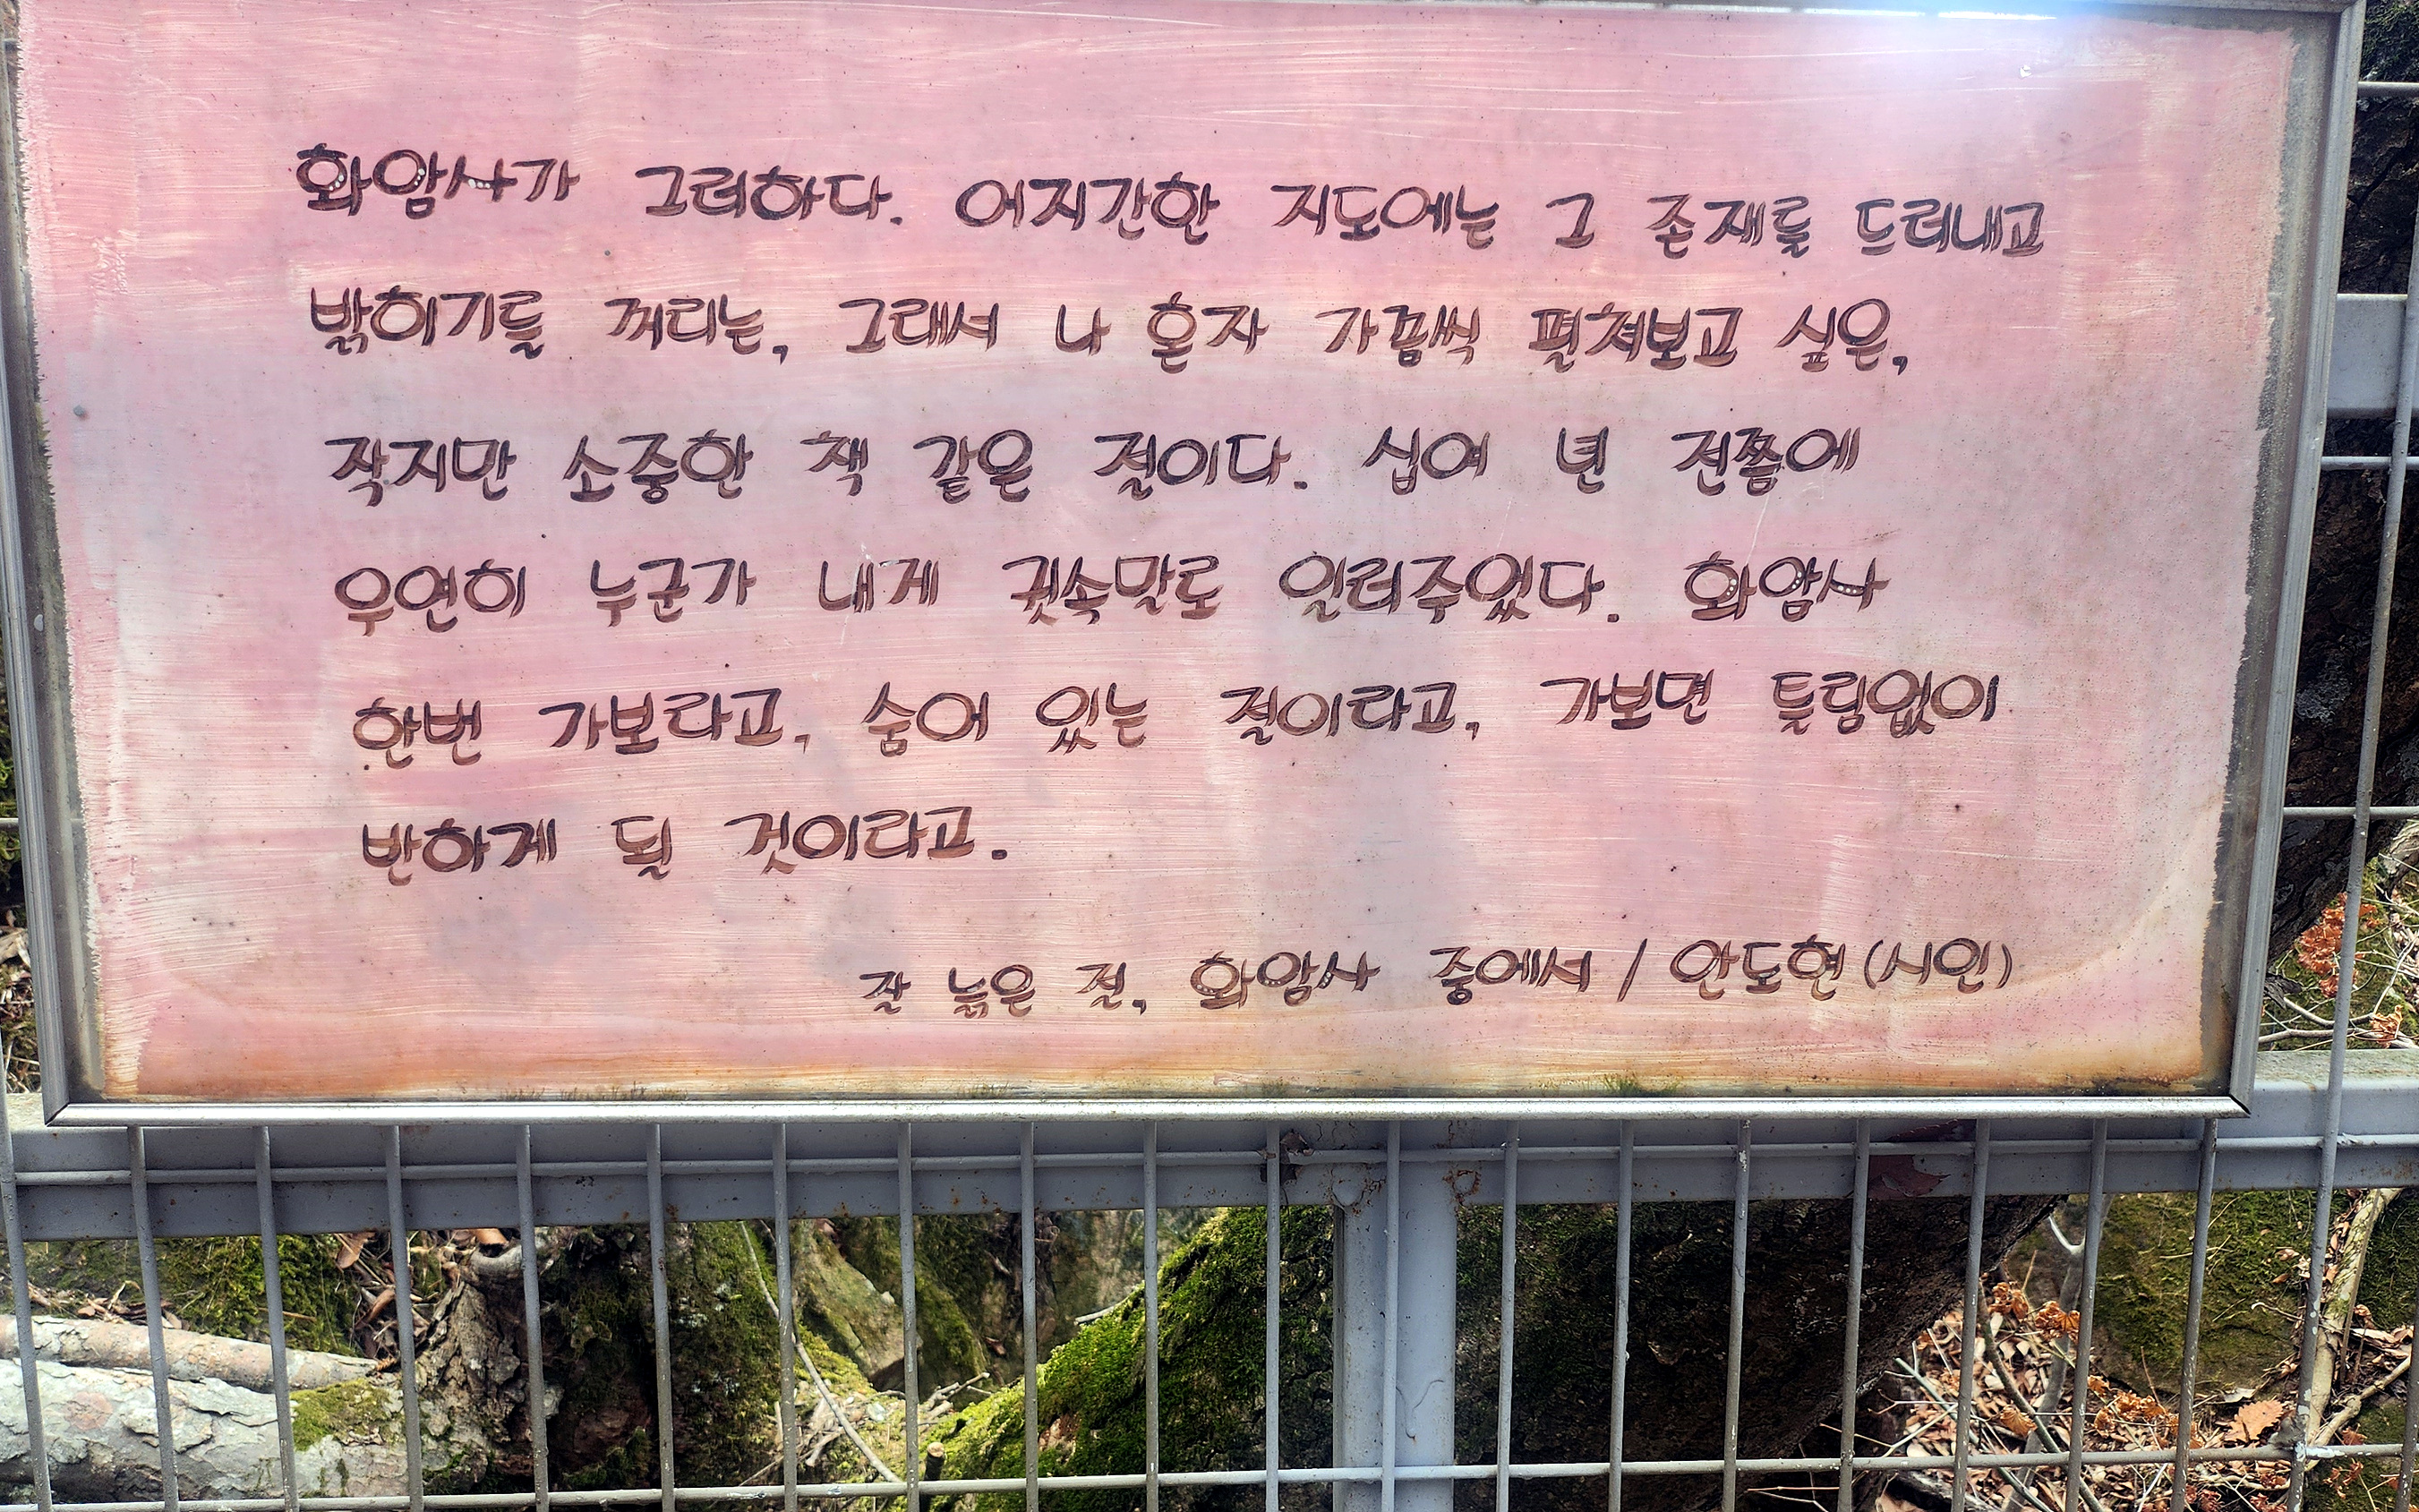 화암사가 그러하다. 어지간한 지도에는 그 존재를 드러내고
밝히기를 꺼리는, 그래서 나 혼자 가끔씩 펼쳐보고 싶은,
작지만 소중한 책 같은 절이다. 십여 년 전쯤에
우연히 누군가 내게 귓속말로 일러주었다. 화암사
한번 가보라고, 숨어 있는 절이라고, 가보면 틀림없이
반하게 될 것이라고.
잘 늙은 절, 화암사 중에서 / 안도현(시인)